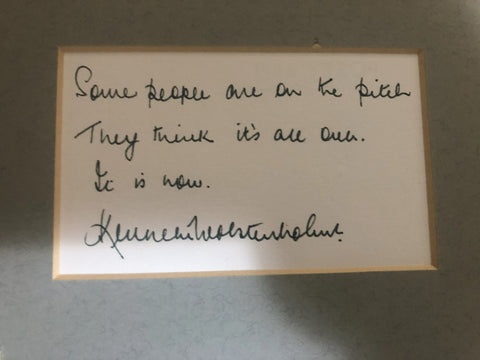 Some people are on the pitch
They think it's all over.
It is now.
Kenneth Wolstenholme.